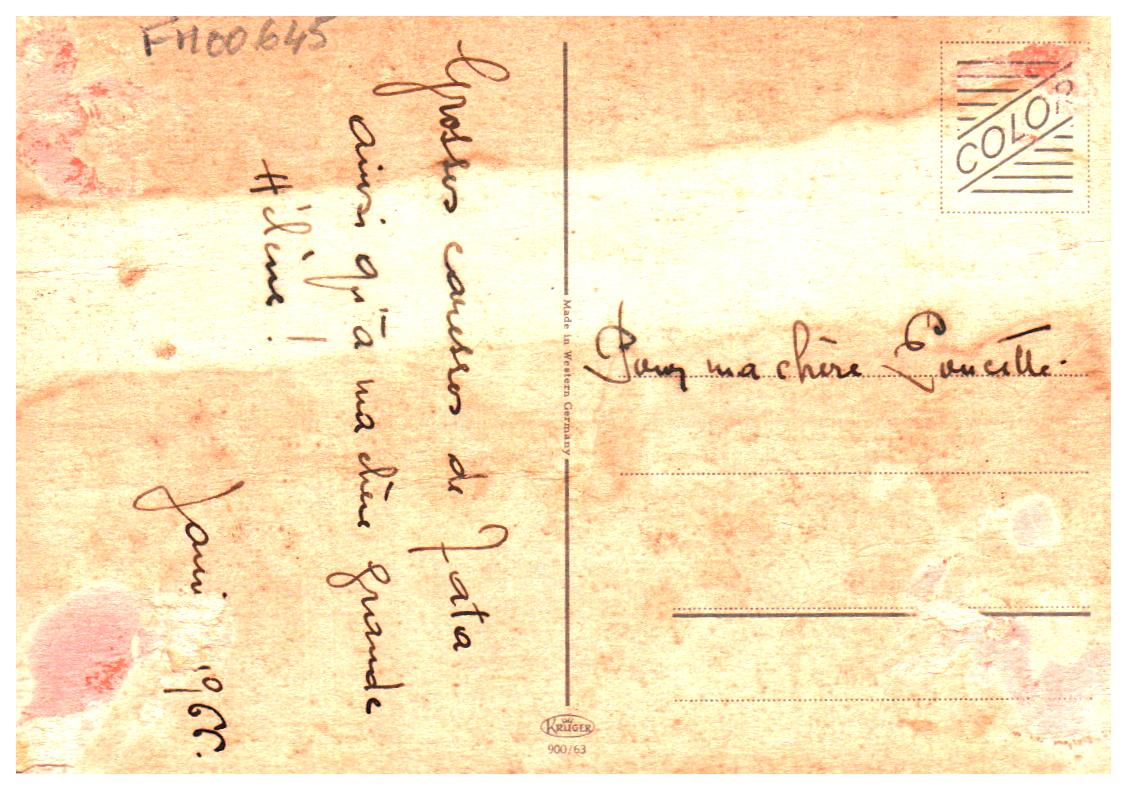 FH00645
Grosses caresses de Tata
ainsi qu'à ma chère grande
Hélène !
Janv. 1966.
Made in Western Germany
KRÜGER
900/63
COLOR
Pour ma chère Poucette.